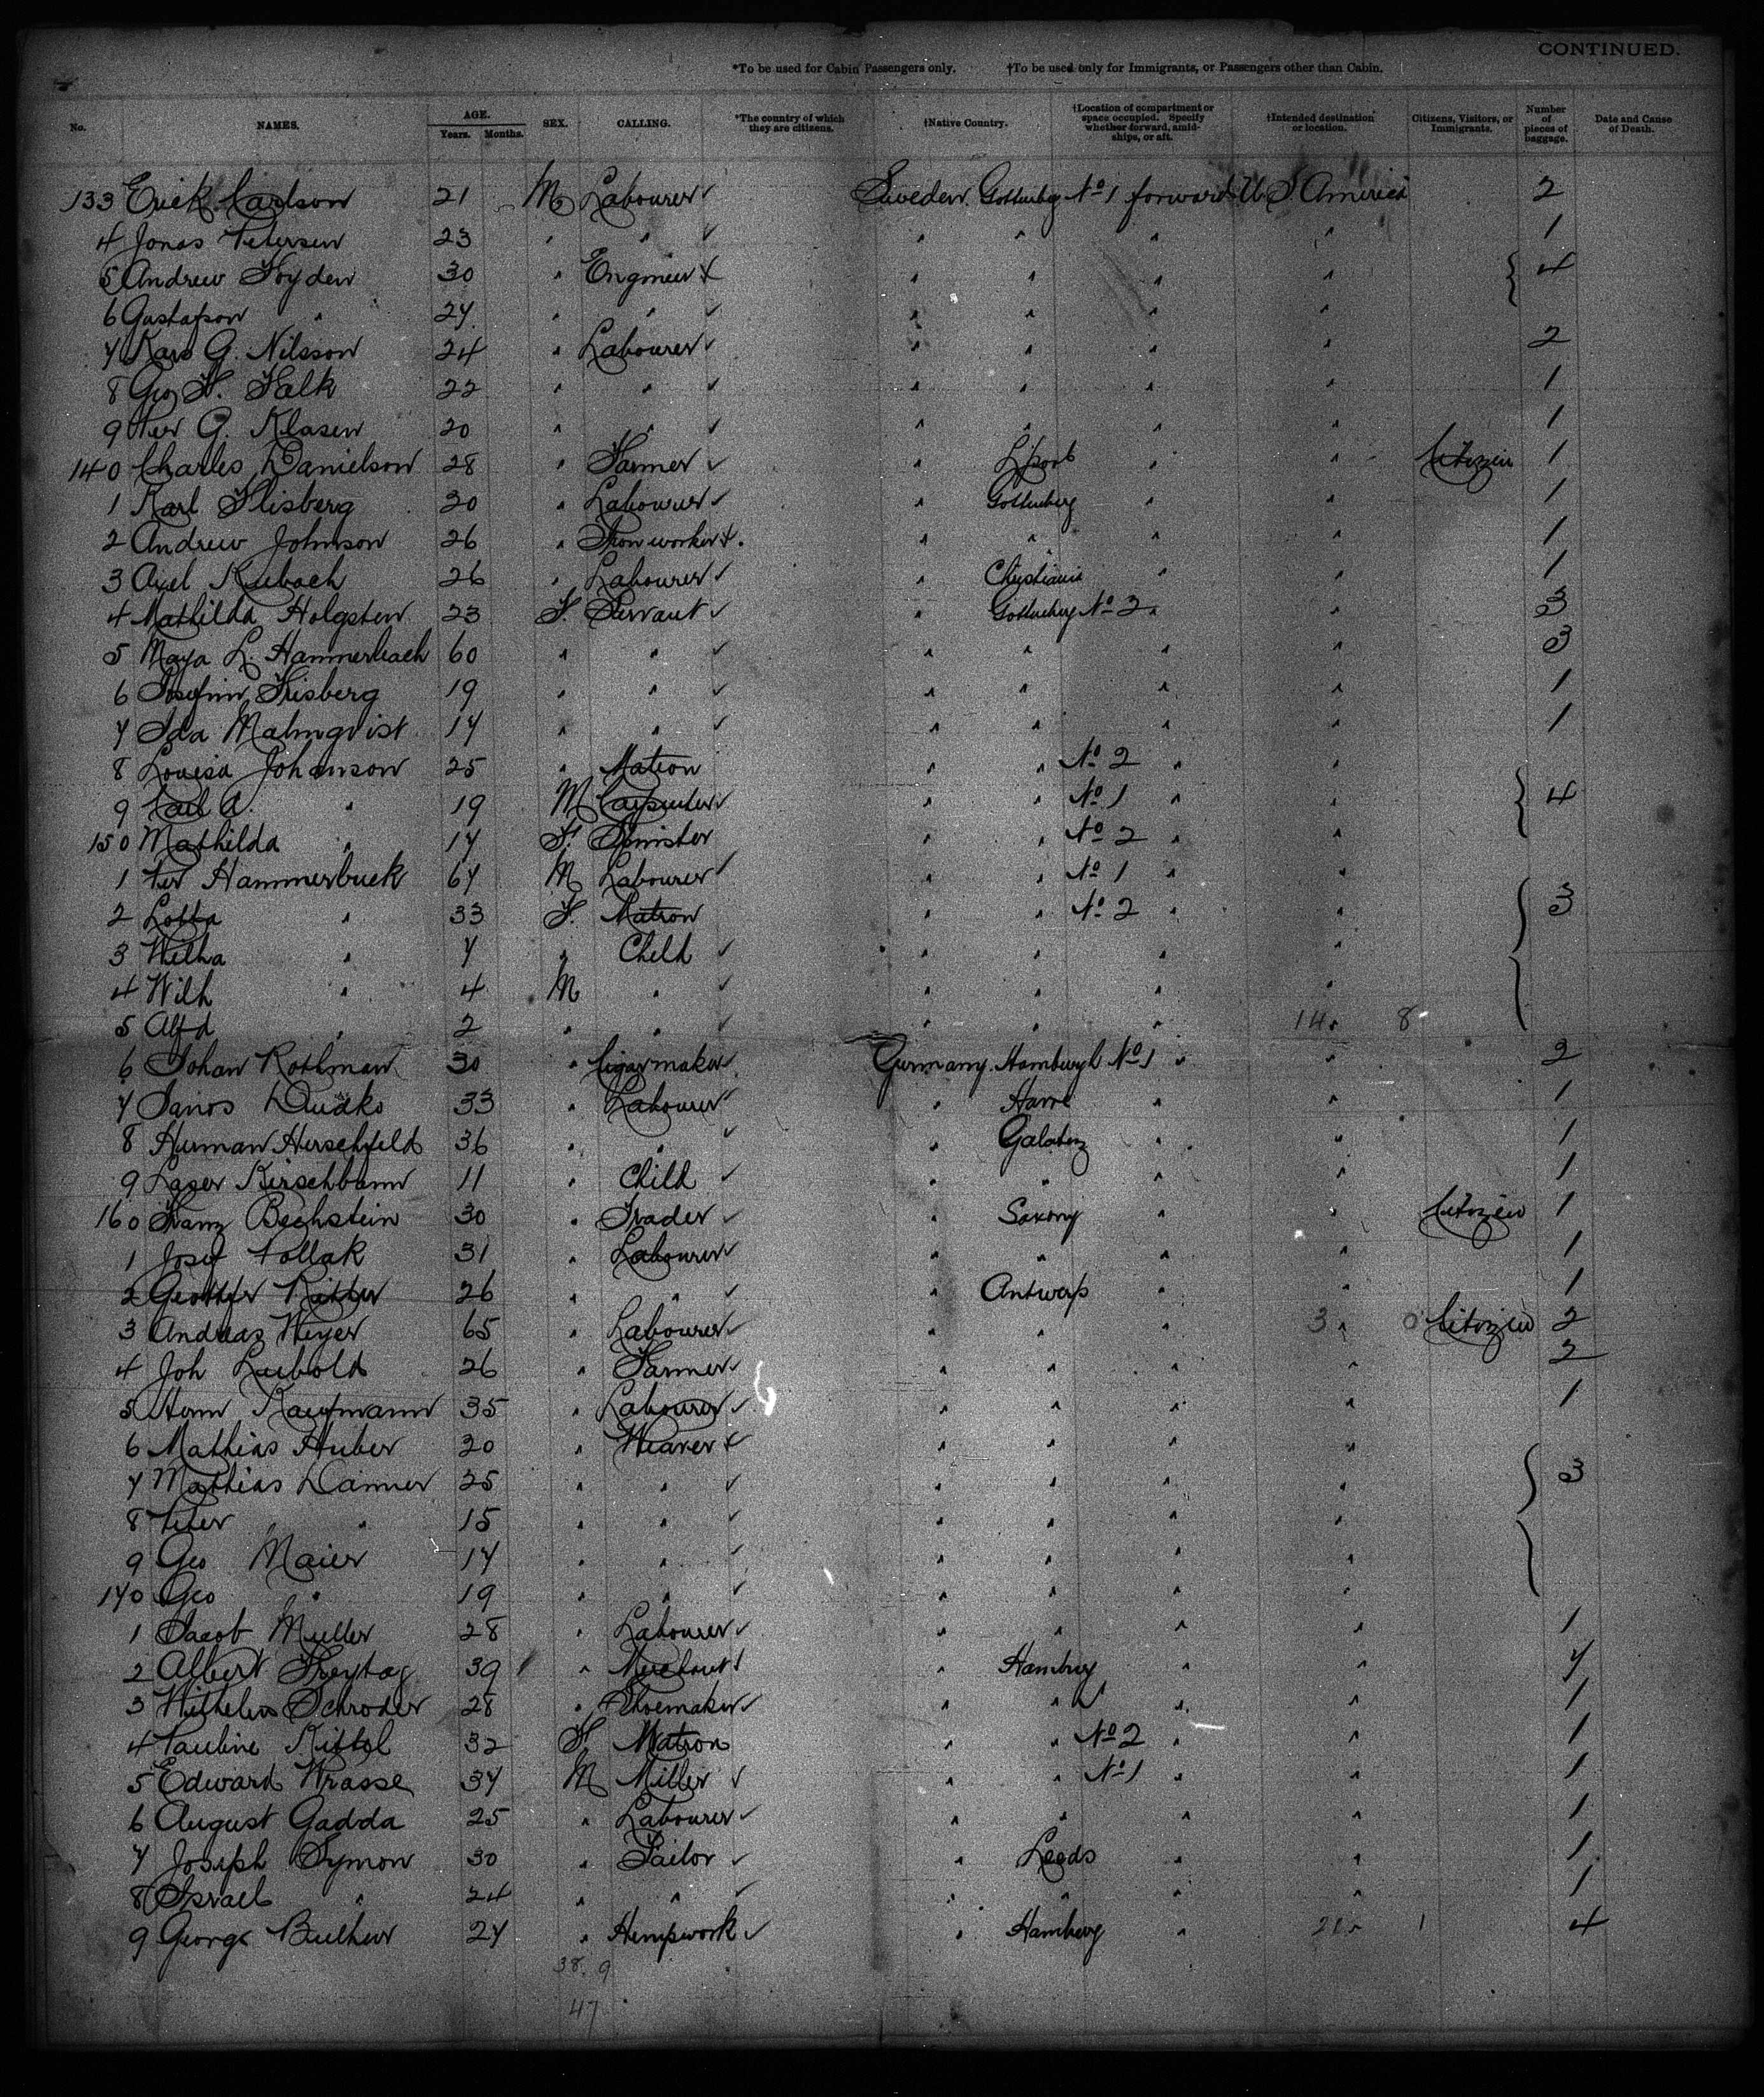 CONTINUED.
*To be used for Cabin Passengers only. †To be used only for Immigrants, or Passengers other than Cabin.
No. NAMES. AGE. Years. Months. SEX. CALLING. *The country of which they are citizens. †Native Country. †Location of compartment or space occupied. Specify whether forward, amidships, or aft. †Intended destination or location. Citizens, Visitors, or Immigrants. Number of pieces of baggage. Date and Cause of Death.
133 Erick Carlson 21 M Labourer ✓ Sweden Gothenberg No 1 forward U.S. America 2
4 Jonas Petersen 23 " " ✓ " " " " 1
5 Andrew Foyden 30 " Engineer " " " " 4
6 Gustafson " 27 " " ✓ " " " "
7 Lars G. Nilsson 24 " Labourer ✓ " " " " 2
8 Geo F. Falk 22 " " ✓ " " " " 1
9 Per G. Klasen 20 " " ✓ " " " " 1
140 Charles Danielson 28 " Farmer ✓ " L'pool " " Citizen 1
1 Karl Flisberg 20 " Labourer ✓ " Gothenberg " " 1
2 Andrew Johnson 26 " Iron worker " " " " 1
3 Axel Rubach 26 " Labourer ✓ " Christiania " " 1
4 Mathilda Holgsten 23 F. Servant ✓ " Gothenberg No 2 " " 3
5 Maya L. Hammerbach 60 " " ✓ " " " " 3
6 Josefin Frisberg 19 " " ✓ " " " " 1
7 Ida Malmqvist 17 " " ✓ " " " " 1
8 Louisa Johanson 25 " Matron " " No 2 " "
9 Carl A. " 19 M Carpenter ✓ " " No 1 " " 4
150 Mathilda " 17 F. Spinster " " No 2 " "
1 Per Hammerbuck 67 M Labourer ✓ " " No 1 " "
2 Lotta " 33 F. Matron " " No 2 " " 3
3 Wilha " 7 " Child ✓ " " " "
4 Wilh " 4 M " ✓ " " " "
5 Alfd " 2 " " ✓ " " " 14 8
6 Johan Rothman 30 " Cigarmaker ✓ Germany Hamburgh No 1 " " 2
7 Janos Dudko 33 " Labourer ✓ " Havre " " 1
8 Herman Herschfeld 36 " " ✓ " " " 1
9 Laser Kirschbaum 11 " Child ✓ " " " " 1
160 Franz Bechstein 30 " Trader ✓ " Saxony " " Citizen 1
1 Josef Pollak 31 " Labourer ✓ " " " " 1
2 Ritter 26 " " ✓ " Antwerp " " 1
3 Andreas Weyer 65 " Labourer ✓ " " " 3 " 0 Citizen 2
4 Joh Luibold 26 " Farmer ✓ " " " " 2
5 Herm Kaufmann 35 " Labourer ✓ " " " " 1
6 Mathias Huber 20 " Weaver " " " "
7 Mathias Danner 25 " " ✓ " " " " 3
8 Peter " 15 " " ✓ " " " "
9 Geo Maier 17 " " ✓ " " " "
170 Geo " 19 " " ✓ " " " "
1 Jacob Muller 28 " Labourer ✓ " " " " 1
2 Albert Freytag 39 " Merchant " Hamburg " " 7
3 Wilhelm Schroder 28 " Shoemaker ✓ " " " " 1
4 Pauline Kittel 32 F. Matron " " No 2 " " 1
5 Edward Wrasse 37 M Miller ✓ " " No 1 " " 1
6 August Gadda 25 " Labourer ✓ " " " " 1
7 Joseph Symon 30 " Tailor ✓ " Leeds " " 1
8 Israel " 24 " " ✓ " " " " 1
9 George 27 " Hempwork ✓ " Hamburg " 21 1 4
38. 9
47